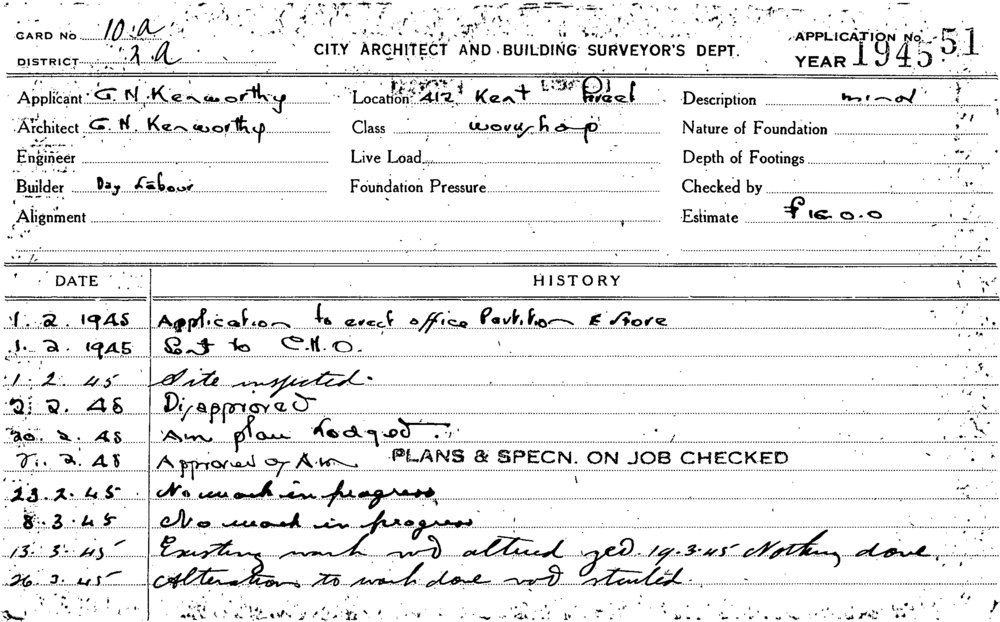 CARD No 10.a
DISTRICT 2a
CITY ARCHITECT AND BUILDING SURVEYOR'S DEPT.
APPLICATION No 51
YEAR 1945
Applicant G. N. Kenworthy Location 412 Kent Street Description minor
Architect G. N. Kenworthy Class workshop Nature of Foundation
Engineer Live Load Depth of Footings
Builder Day Labour Foundation Pressure Checked by
Alignment Estimate £16.0.0
DATE HISTORY
1. 2. 1945 Application to erect office Partition & store
1. 2. 1945 Sent to C.H.O.
1. 2. 45 Site inspected.
2. 2. 45 Disapproved
20. 2. 45 Am plan Lodged.
2. 45 Approved of Am PLANS & SPECN. ON JOB CHECKED
23. 2. 45 No work in progress
8. 3. 45 No work in progress
13. 3. 45 Existing work altered 19.3.45 Nothing done.
26. 3. 45 Alterations to work done started.